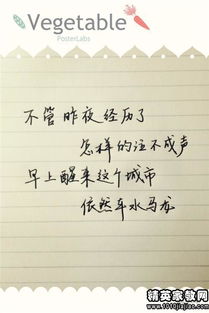 Vegetable
PosterLabs
不管昨夜经历了
怎样的泣不成声
早上醒来这个城市
依然车水马龙
精英家教网
www.1010jiajiao.com